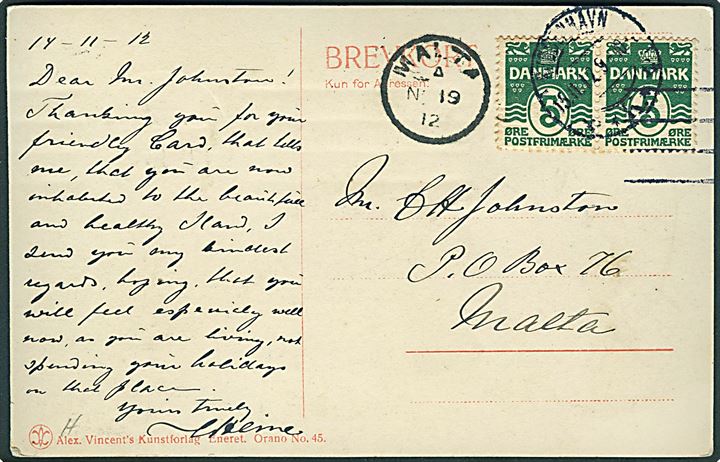 14-11-12
Dear Mr. Johnston!
Thanking you for your
friendly Card, that tells
me, that you are now
inhabited to the beautifull
and healthy Iland, I
send you my kindest
regards, hoping, that you
will feel especiely well
now, as you are living, not
spending your holidays
on that place.
Yours truly
H
Alex. Vincent's Kunstforlag Eneret. Orano No. 45.
BREVKORT
Kun for Adressen.
MALTA
A
NO 19
12
DANMARK
5
ØRE
POSTFRIMÆRKE
DANMARK
5
ØRE
POSTFRIMÆRKE
Mr. C H Johnston
P.O Box 76
Malta